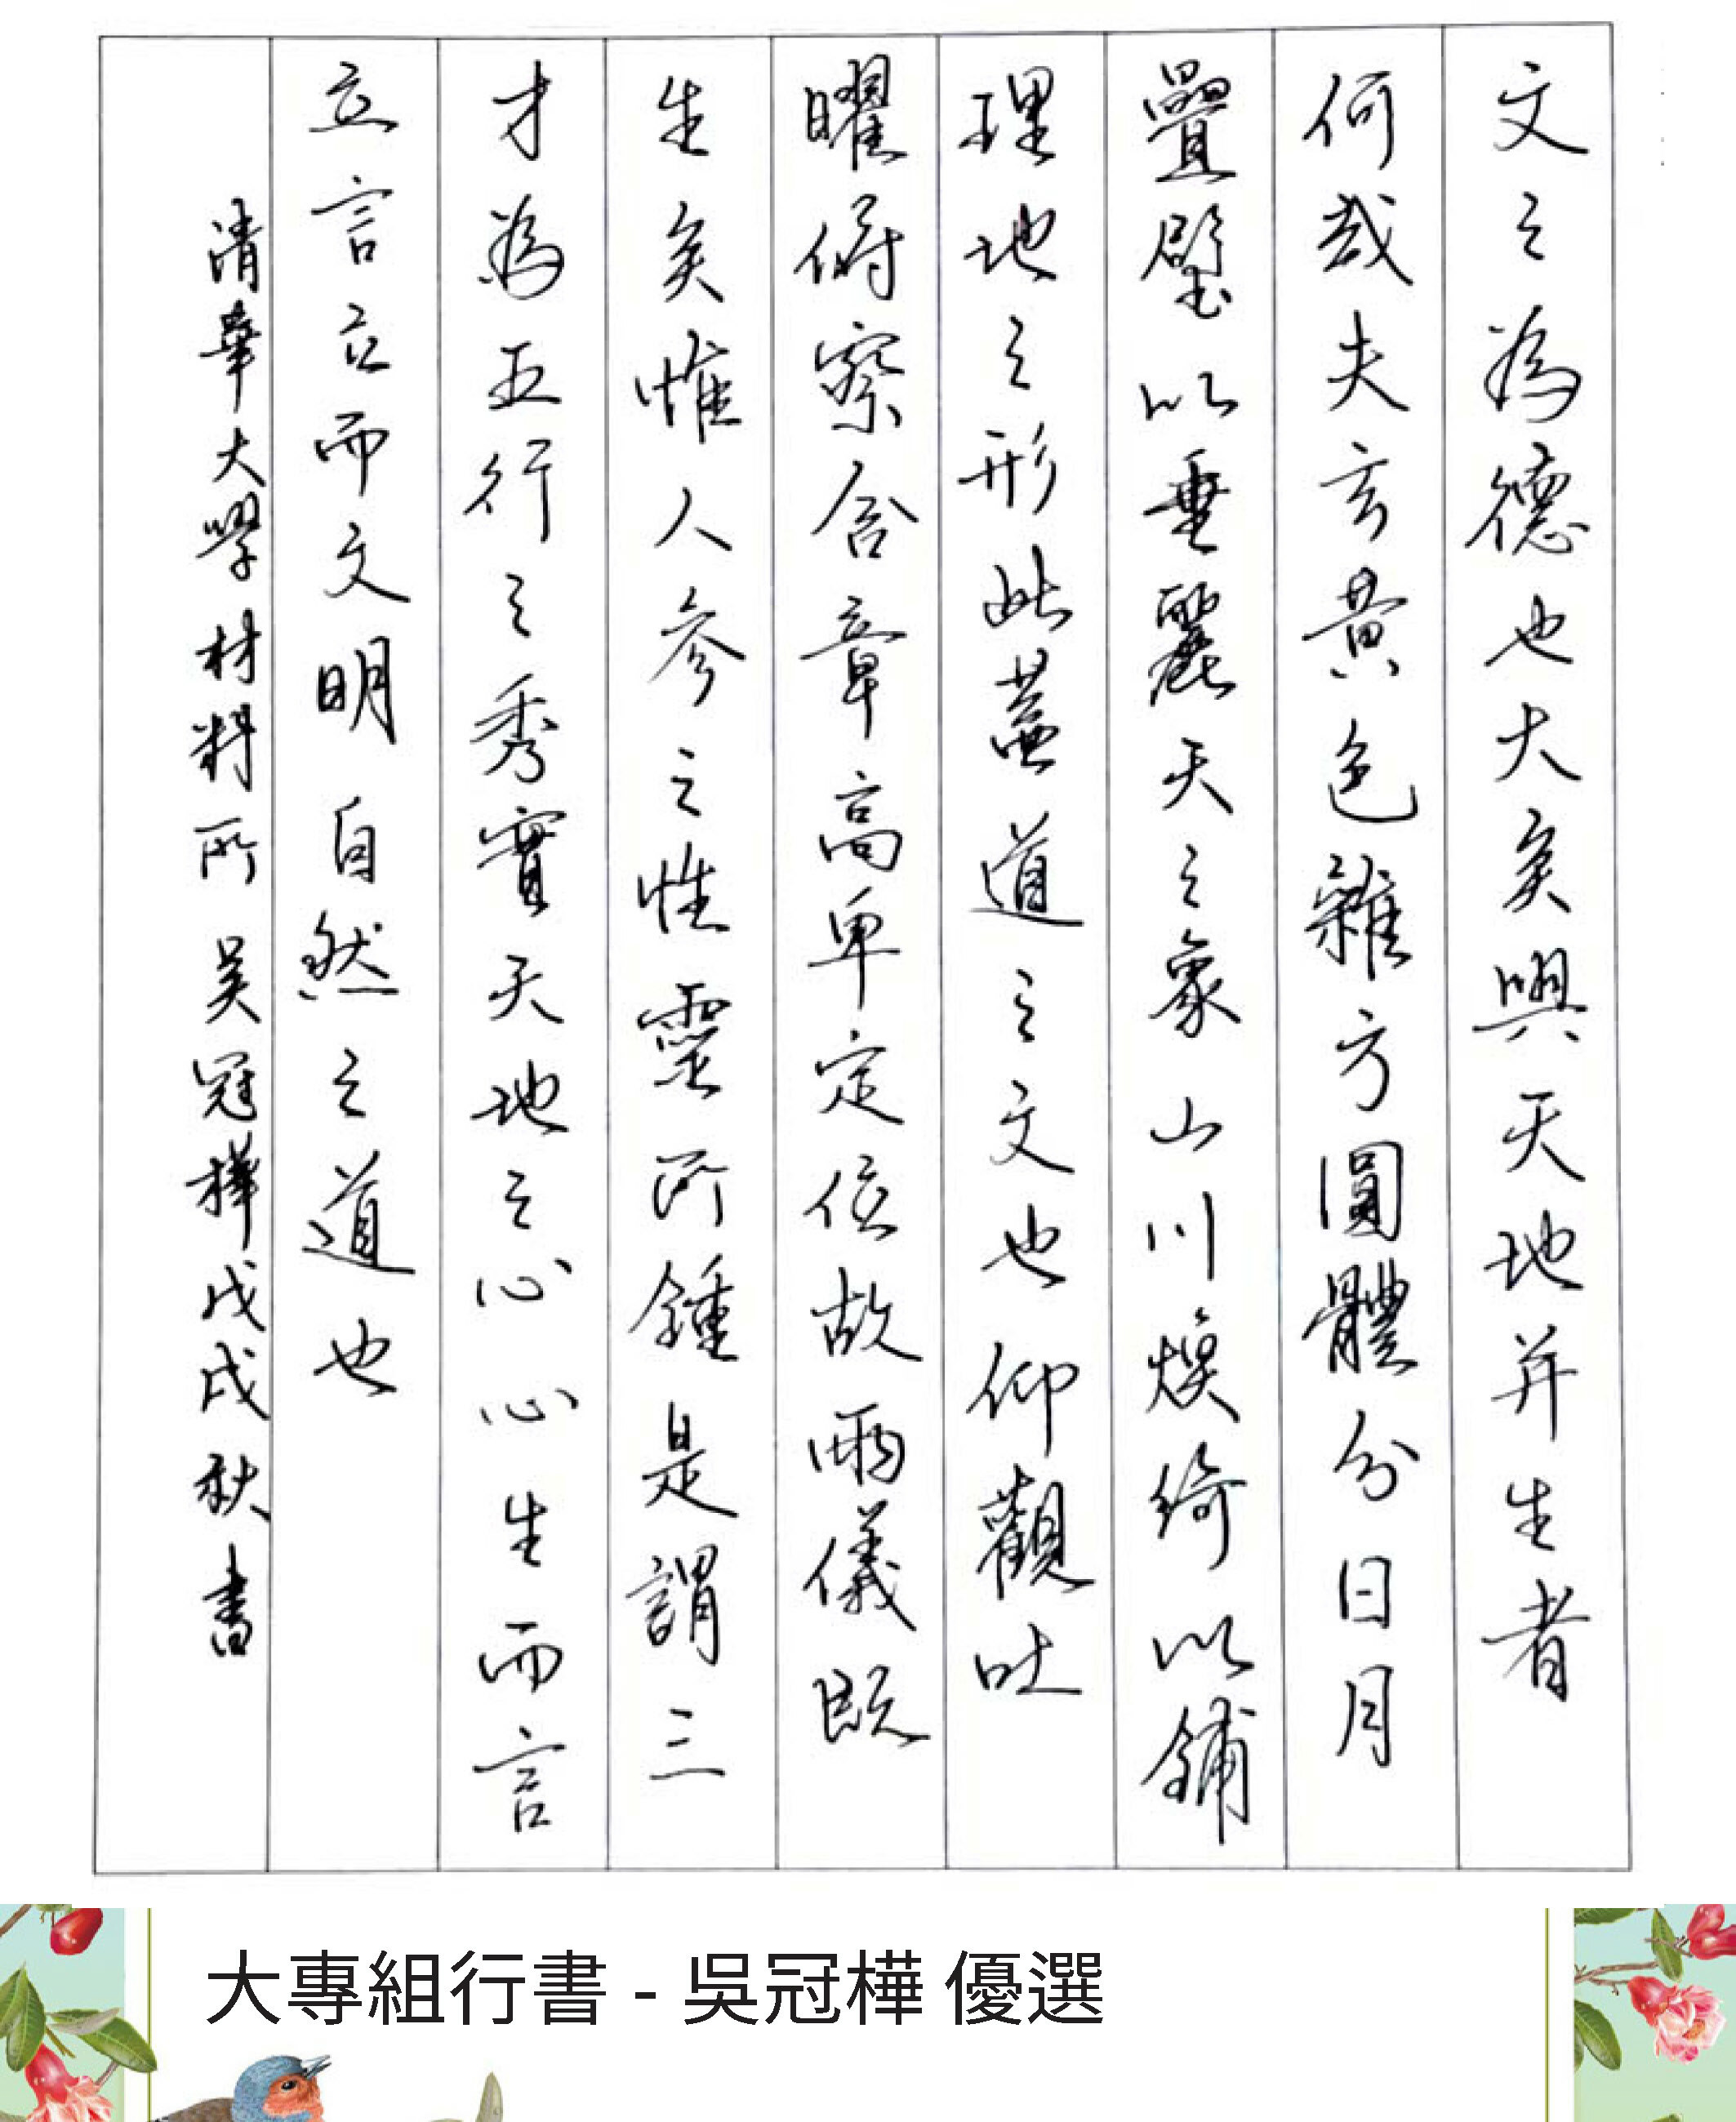 文之為德也大矣與天地并生者
何哉夫玄黃色雜方圓體分日月
疊璧以垂麗天之象山川煥綺以鋪
理地之形此蓋道之文也仰觀吐
曜俯察含章高卑定位故兩儀既
生矣惟人參之性靈所鍾是謂三
才為五行之秀實天地之心心生而言
立言立而文明自然之道也
清華大學材料所 吳冠樺戊戌秋書
大專組行書 - 吳冠樺 優選